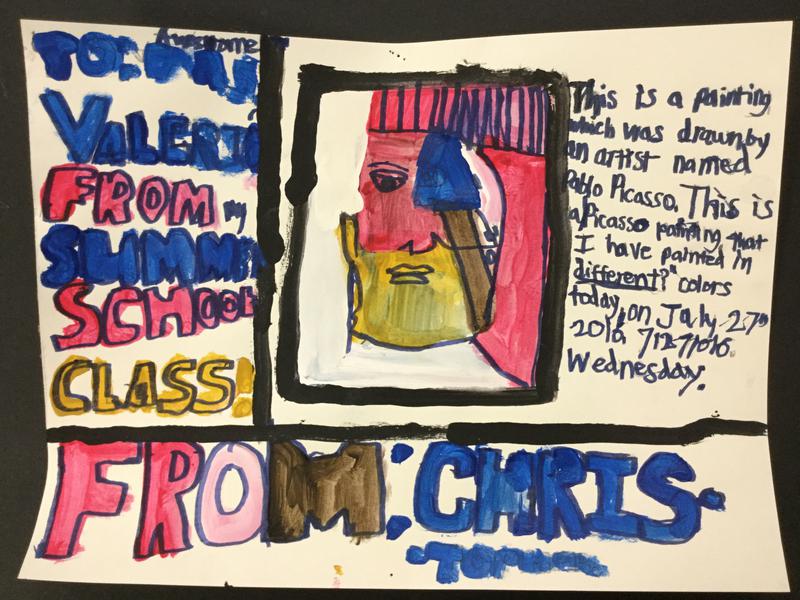 Awesome
TO:
VALERIE
FROM my
SUMMER
SCHOOL
CLASS!
This is a painting
which was drawn by
an artist named
Pablo Picasso. This is
a Picasso painting that
I have painted in
different?" colors
today, on July 27th
2016 7/27/2016.
Wednesday.
FROM: CHRIS-
-TOPHER